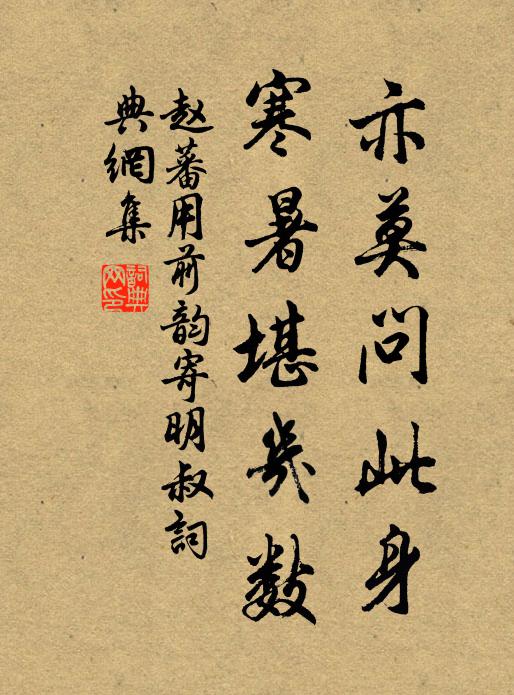 亦莫问此身
寒暑堪几数
赵蕃用前韵寄明叔词
典網集
詞典
网印